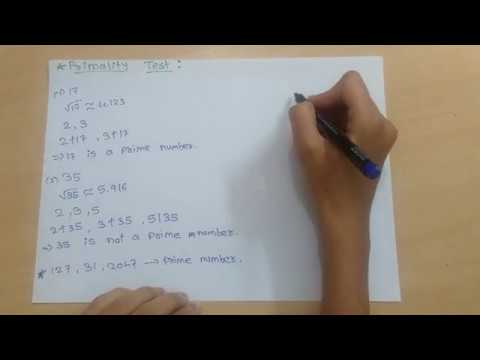 * Primality Test :
(1) 17
√17 ≈ 4.123
2, 3
2∤17, 3∤17
⇒ 17 is a prime number.
(2) 35
√35 ≈ 5.916
2, 3, 5
2∤35, 3∤35, 5|35
⇒ 35 is not a prime number.
* 127, 31, 2047 → prime number.